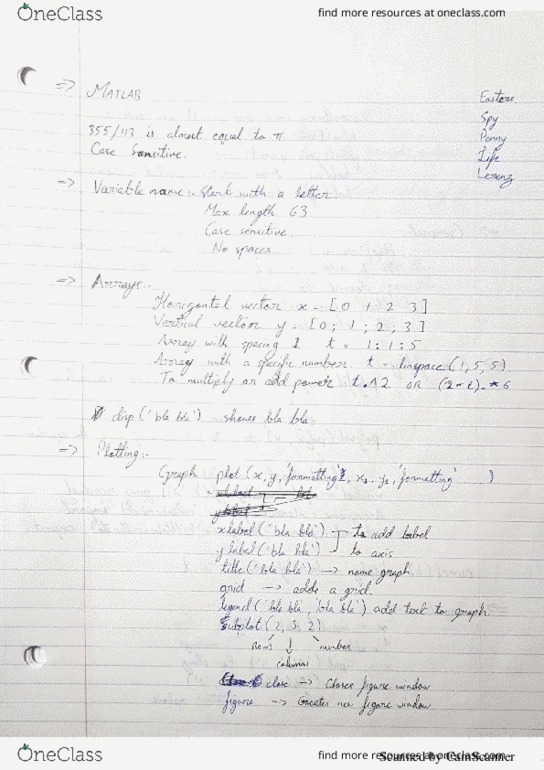 OneClass
find more resources at oneclass.com
=> MATLAB
Easter
Spy
Penny
Life
Lorenz
355/113 is almost equal to π
Case Sensitive.
=> Variable name:- Start with a letter.
Max length 63
Case sensitive.
No spaces
=> Arrays:-
Horizontal vector x = [0 1 2 3]
Vertical vector y = [0; 1; 2; 3]
Array with spacing 1 t = 1:1:5
Array with a specific number. t = linspace(1,5,5)
To multiply or add power t.^2 OR (2-t).*6
disp('bla bla') shows bla bla
=> Plotting:-
Graph plot(x, y, 'formatting', x2, y2, 'formatting' )
xlabel('bla bla') to add label
ylabel('bla bla') to axis
title('bla bla') -> name graph.
grid -> adds a grid.
legend('bla bla', 'bla bla') add text to graph.
subplot(2, 3, 2)
rows number
columns
close -> Closes figure window
figure -> Creates new figure window.
OneClass
find more resources at oneclass.com
Scanned by CamScanner